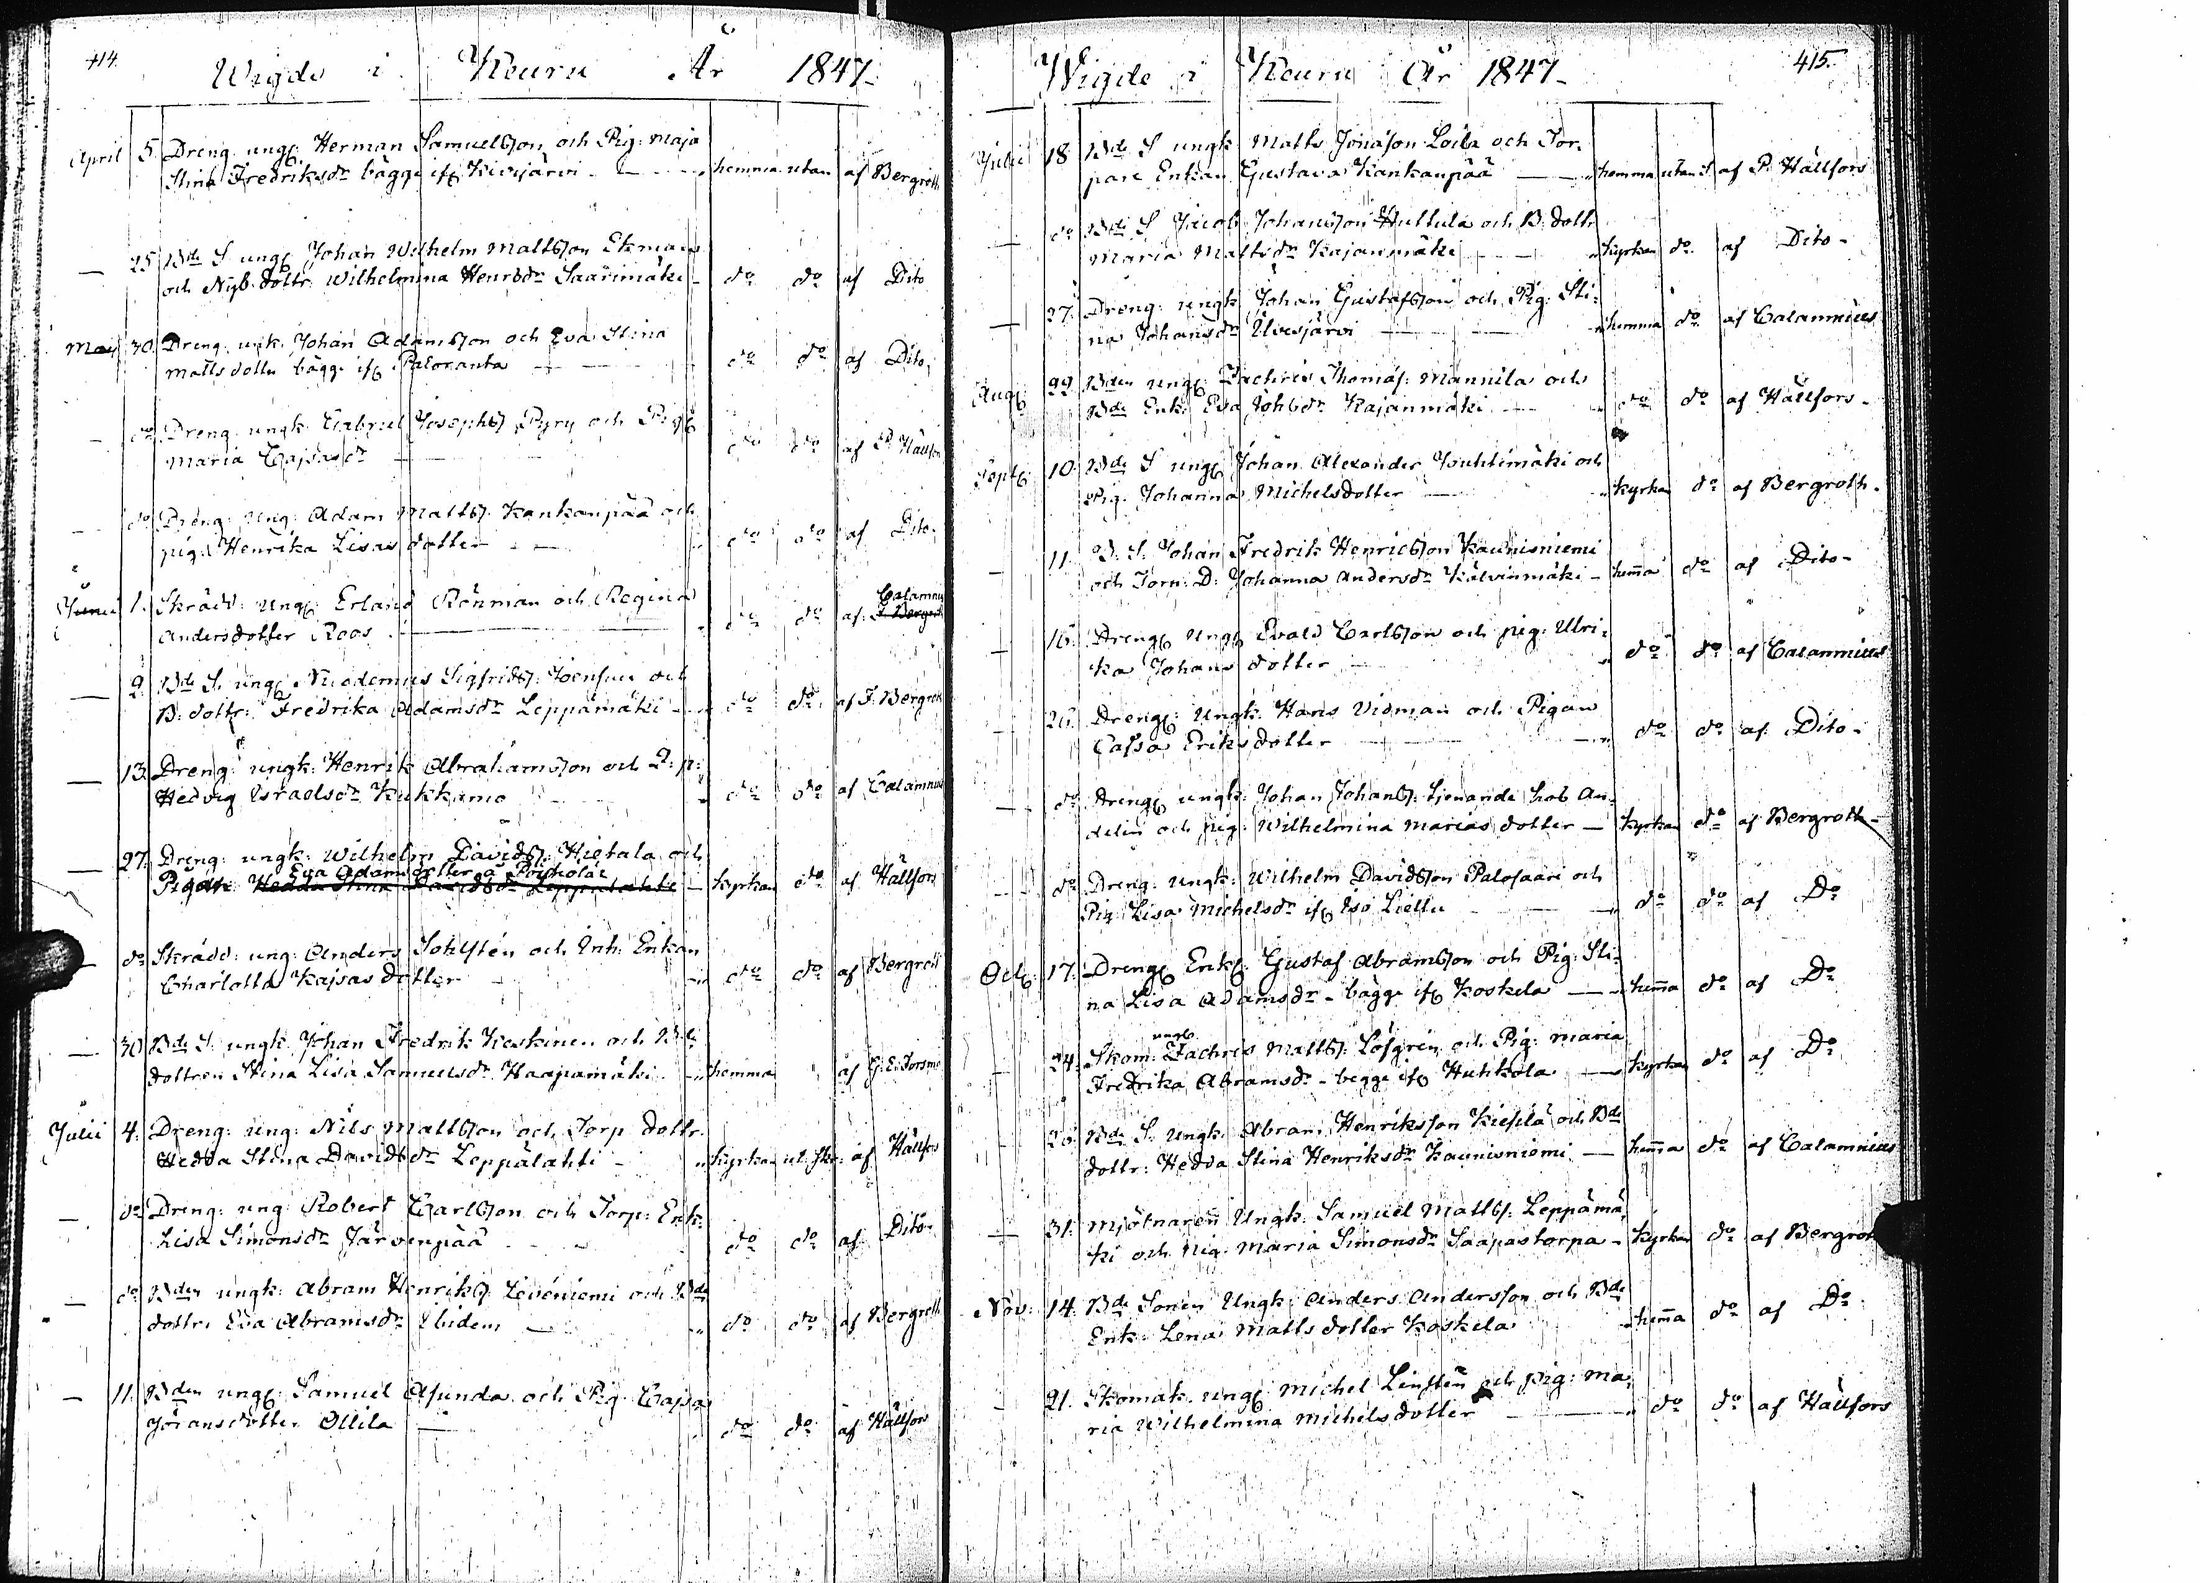 414.
Wigde i Keuru År 1847.
April 5. Dreng. ungk: Herman Samuelsson och Pig: Maja
Stina Fredriksdr bägge ifr Kivijärvi — hemma utan af Bergroth
— 25. Bde S ungk Johan Wilhelm Mattsson Ekman
och Nyb. dottr. Wilhelmina Henrsdr Saarimäki do do af Dito
Maj 30. Dreng. unk. Johan Adamsson och Eva Stina
Matts dotter bägge ifr Paloranta — do do af Dito,
— do Dreng. ungk. Gabriel Josephs. Pyry och Pig
Maria Cajsasdr — do do af P. Hällfors
— do Dreng. Ung: Adam Matts. Kankanpää och
pig. Henrika Lisas dotter — do do af Dito.
Junii 1. Skrädd: Ungk: Erland Rönman och Regina
Andersdotter Roos — do do af Calamnius
— 2. Bde S. ungk Nicodemus Sigfrids. Joensuu och
B: dottr: Fredrika Adamsdr Leppämäki — do do af F. Bergroth
— 13. Dreng: ungk: Henrik Abrahamsson och
Hedvig Israelsdr Kukkamo — do do af Calamnius
27. Dreng: ungk: Wilhelm Davids. Hietala och
Eva Adamsdotter å
Pigan: Hedda Stina Davidsdr Leppälahti — Kyrkan do af Hällfors
— do Skrädd: ung: Anders Sohlstén och Inh: Enkan
Charlotta Kajsas dotter — do do af Bergroth
— 30. Bde S. ungk. Johan Fredrik Keskinen och Bde
dottren Stina Lisa Samuelsdr Haapamäki — hemma " af G. E. Forsman
Julii 4. Dreng: ung: Nils Mattsson och Torp dottr.
Hedda Stina Davidsdr Leppälahti — Kyrkan ut. af Hällfors
— do Dreng: ung: Robert Carlsson och Torp: Enk:
Lisa Simonsdr Järvenpää — do do af Dito
— do Bden ungk: Abram Henriks. Levéniemi och Bde
dottr. Eva Abramsdr Ibidem — do do af Bergroth
— 11. Bden ungk: Samuel Asunda och Pig Cajsa
Joransdotter Ollila — do do af Hällfors
415.
Wigde i Keuru År 1847—
Julii 18 Bde S ungk Matts Jonasson Loila och Tor-
pare Enkan Gustava Kankanpää — hemma utan af P. Hällfors
— do Bde S Jacob Johansson Huttula och B: dottr
Maria Mattsdr Kajanmäki — Kyrkan do af Dito—
— 27. Dreng: ungk Johan Gustafsson och Pig: Sti-
na Johansdr Ulvesjärvi — hemma do af Calamnius
Aug 22 Bden ungk: Zachris Thomas: Mannila och
Bde Enk: Eva Johsdr Kajanmäki — do do af Hällfors—
Septr 10. Bde S ungk Johan Alexander Jouhtimäki och
Pig. Johanna Michelsdotter — Kyrkan do af Bergroth.
— 11. B. S. Johan Fredrik Henricsson Kaunisniemi
och Torp: D: Johanna Andersdr Kalvinmäki — hema do af Dito—
— 16. Dreng Ungk Evald Carlsson och pig: Ulri-
ka Johans dotter — do do af Calamnius
— 26. Dreng: Ungk. Hans Vidman och Pigan
Cajsa Eriks dotter — do do af Dito—
— do Dreng ungk: Johan Johans: tjenande hos An-
delin och pig: Wilhelmina Marias dotter — Kyrkan do af Bergroth—
— do Dreng: ungk: Wilhelm Davidsson Palosaari och
Pig. Lisa Michelsdr ifr Iso Liettu — do do af Do
Oct 17. Dreng Enk: Gustaf Abramsson och Pig: Sti-
na Lisa Adamsdr – bägge ifr Koskela — hema do af Do
ungk
— 24. Skom: Zachris Matts: Löfgren och Pig: Maria
Fredrika Abramsdr – begge ifr Huhkola — Kyrkan do af Do
— 26. Bde S. Ungk. Abram Henriksson Kiesilä och Bde
dottr: Hedda Stina Henriksdr Kaunisniemi — hema do af Calamnius
— 31. Mjölnaren Ungk. Samuel Matts: Leppämä-
ki och Pig: Maria Simonsdr Saapastorpa — Kyrkan do af Bergroth
Nov: 14. Bde Sonen Ungk: Anders Andersson och Bde
Enk: Lena Matts dotter Koskela — hema do af Do
— 21. Skomak. ungk Michel Linstén och pig: Ma-
ria Wilhelmina Michelsdotter — do do af Hällfors